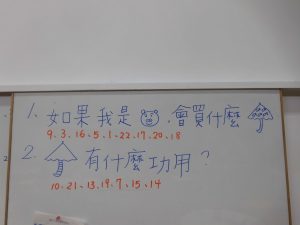 1. 如果我是，會買什麼
9.3.16.5.1.22.17.20.18
2. 有什麼功用？
10.21.13.19.7.15.14